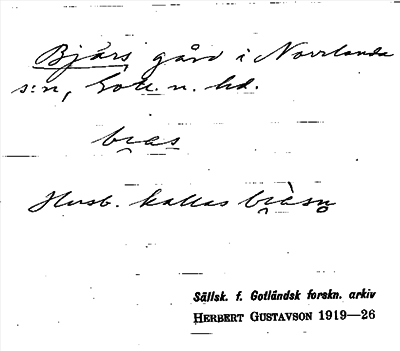 Bjärs gård i Norrlanda
s:n, Gotl. n. hd.
bi̯as
Husb. kallas bi̯àsn̥
Sällsk. f. Gotländsk forskn. arkiv
HERBERT GUSTAVSON 1919—26